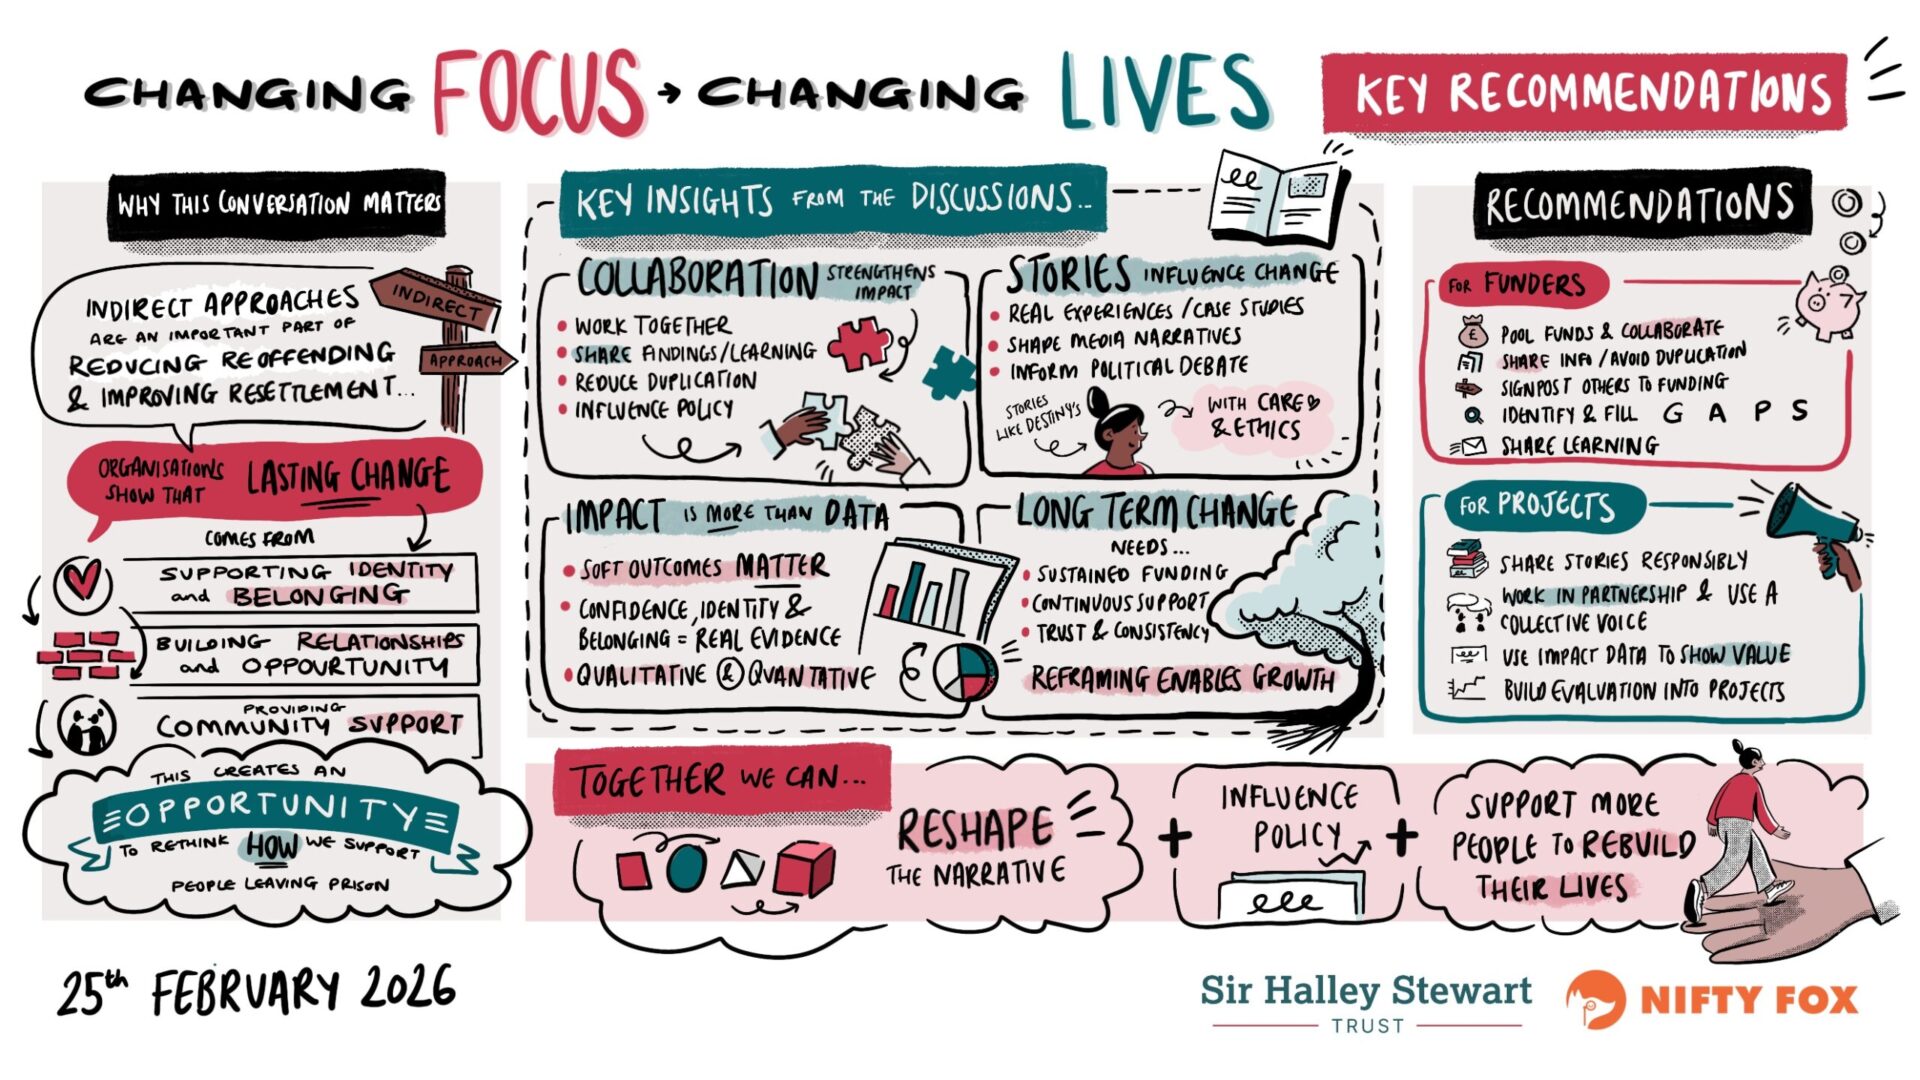 CHANGING FOCUS → CHANGING LIVES
KEY RECOMMENDATIONS
WHY THIS CONVERSATION MATTERS
INDIRECT APPROACHES
ARE AN IMPORTANT PART OF
REDUCING REOFFENDING
& IMPROVING RESETTLEMENT...
INDIRECT
APPROACH
ORGANISATIONS
SHOW THAT
LASTING CHANGE
COMES FROM
SUPPORTING IDENTITY
and BELONGING
BUILDING RELATIONSHIPS
and OPPOURTUNITY
PROVIDING
COMMUNITY SUPPORT
THIS CREATES AN
OPPORTUNITY
TO RETHINK HOW WE SUPPORT
PEOPLE LEAVING PRISON
KEY INSIGHTS FROM THE DISCUSSIONS...
COLLABORATION STRENGTHENS
IMPACT
• WORK TOGETHER
• SHARE FINDINGS/LEARNING
• REDUCE DUPLICATION
• INFLUENCE POLICY
STORIES INFLUENCE CHANGE
• REAL EXPERIENCES / CASE STUDIES
• SHAPE MEDIA NARRATIVES
• INFORM POLITICAL DEBATE
STORIES
LIKE DESTINY'S
WITH CARE
& ETHICS
IMPACT IS MORE THAN DATA
• SOFT OUTCOMES MATTER
• CONFIDENCE, IDENTITY &
BELONGING = REAL EVIDENCE
• QUALITATIVE & QUANTATIVE
LONG TERM CHANGE
NEEDS...
• SUSTAINED FUNDING
• CONTINUOUS SUPPORT
• TRUST & CONSISTENCY
REFRAMING ENABLES GROWTH
RECOMMENDATIONS
FOR FUNDERS
£
POOL FUNDS & COLLABORATE
SHARE INFO / AVOID DUPLICATION
SIGNPOST OTHERS TO FUNDING
IDENTIFY & FILL G A P S
SHARE LEARNING
FOR PROJECTS
SHARE STORIES RESPONSIBLY
WORK IN PARTNERSHIP & USE A
COLLECTIVE VOICE
USE IMPACT DATA TO SHOW VALUE
BUILD EVALUATION INTO PROJECTS
TOGETHER WE CAN...
RESHAPE
THE NARRATIVE
+
INFLUENCE
POLICY
+
SUPPORT MORE
PEOPLE TO REBUILD
THEIR LIVES
25th FEBRUARY 2026
Sir Halley Stewart
TRUST
NIFTY FOX